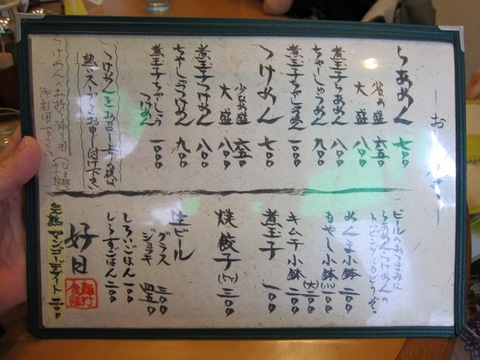 らあめん 七〇〇
少なめ盛 六五〇
大盛 八〇〇
煮玉子らあめん 八〇〇
ちゃしゅうめん 九〇〇
煮玉子ちゃしゅうめん 一〇〇〇
つけめん 七〇〇
少なめ盛 六五〇
大盛 八〇〇
煮玉子つけめん 八〇〇
ちゃしゅうつけめん 九〇〇
煮玉子ちゃしゅうつけめん 一〇〇〇
つけめんを召し上り後は
熱いスープとお申し付け下さい
ビールのおつまみに
らあめん、つけめんの
トッピングにどうぞ
めんま小鉢 二〇〇
もやし小鉢
キムチ小鉢 二〇〇
煮玉子 一〇〇
焼餃子 三〇〇
生ビール
グラス 三〇〇
ジョッキ 四五〇
しろいごはん 一〇〇
しらすごはん 二〇〇
好日
完熟マンゴーデザート 二〇〇